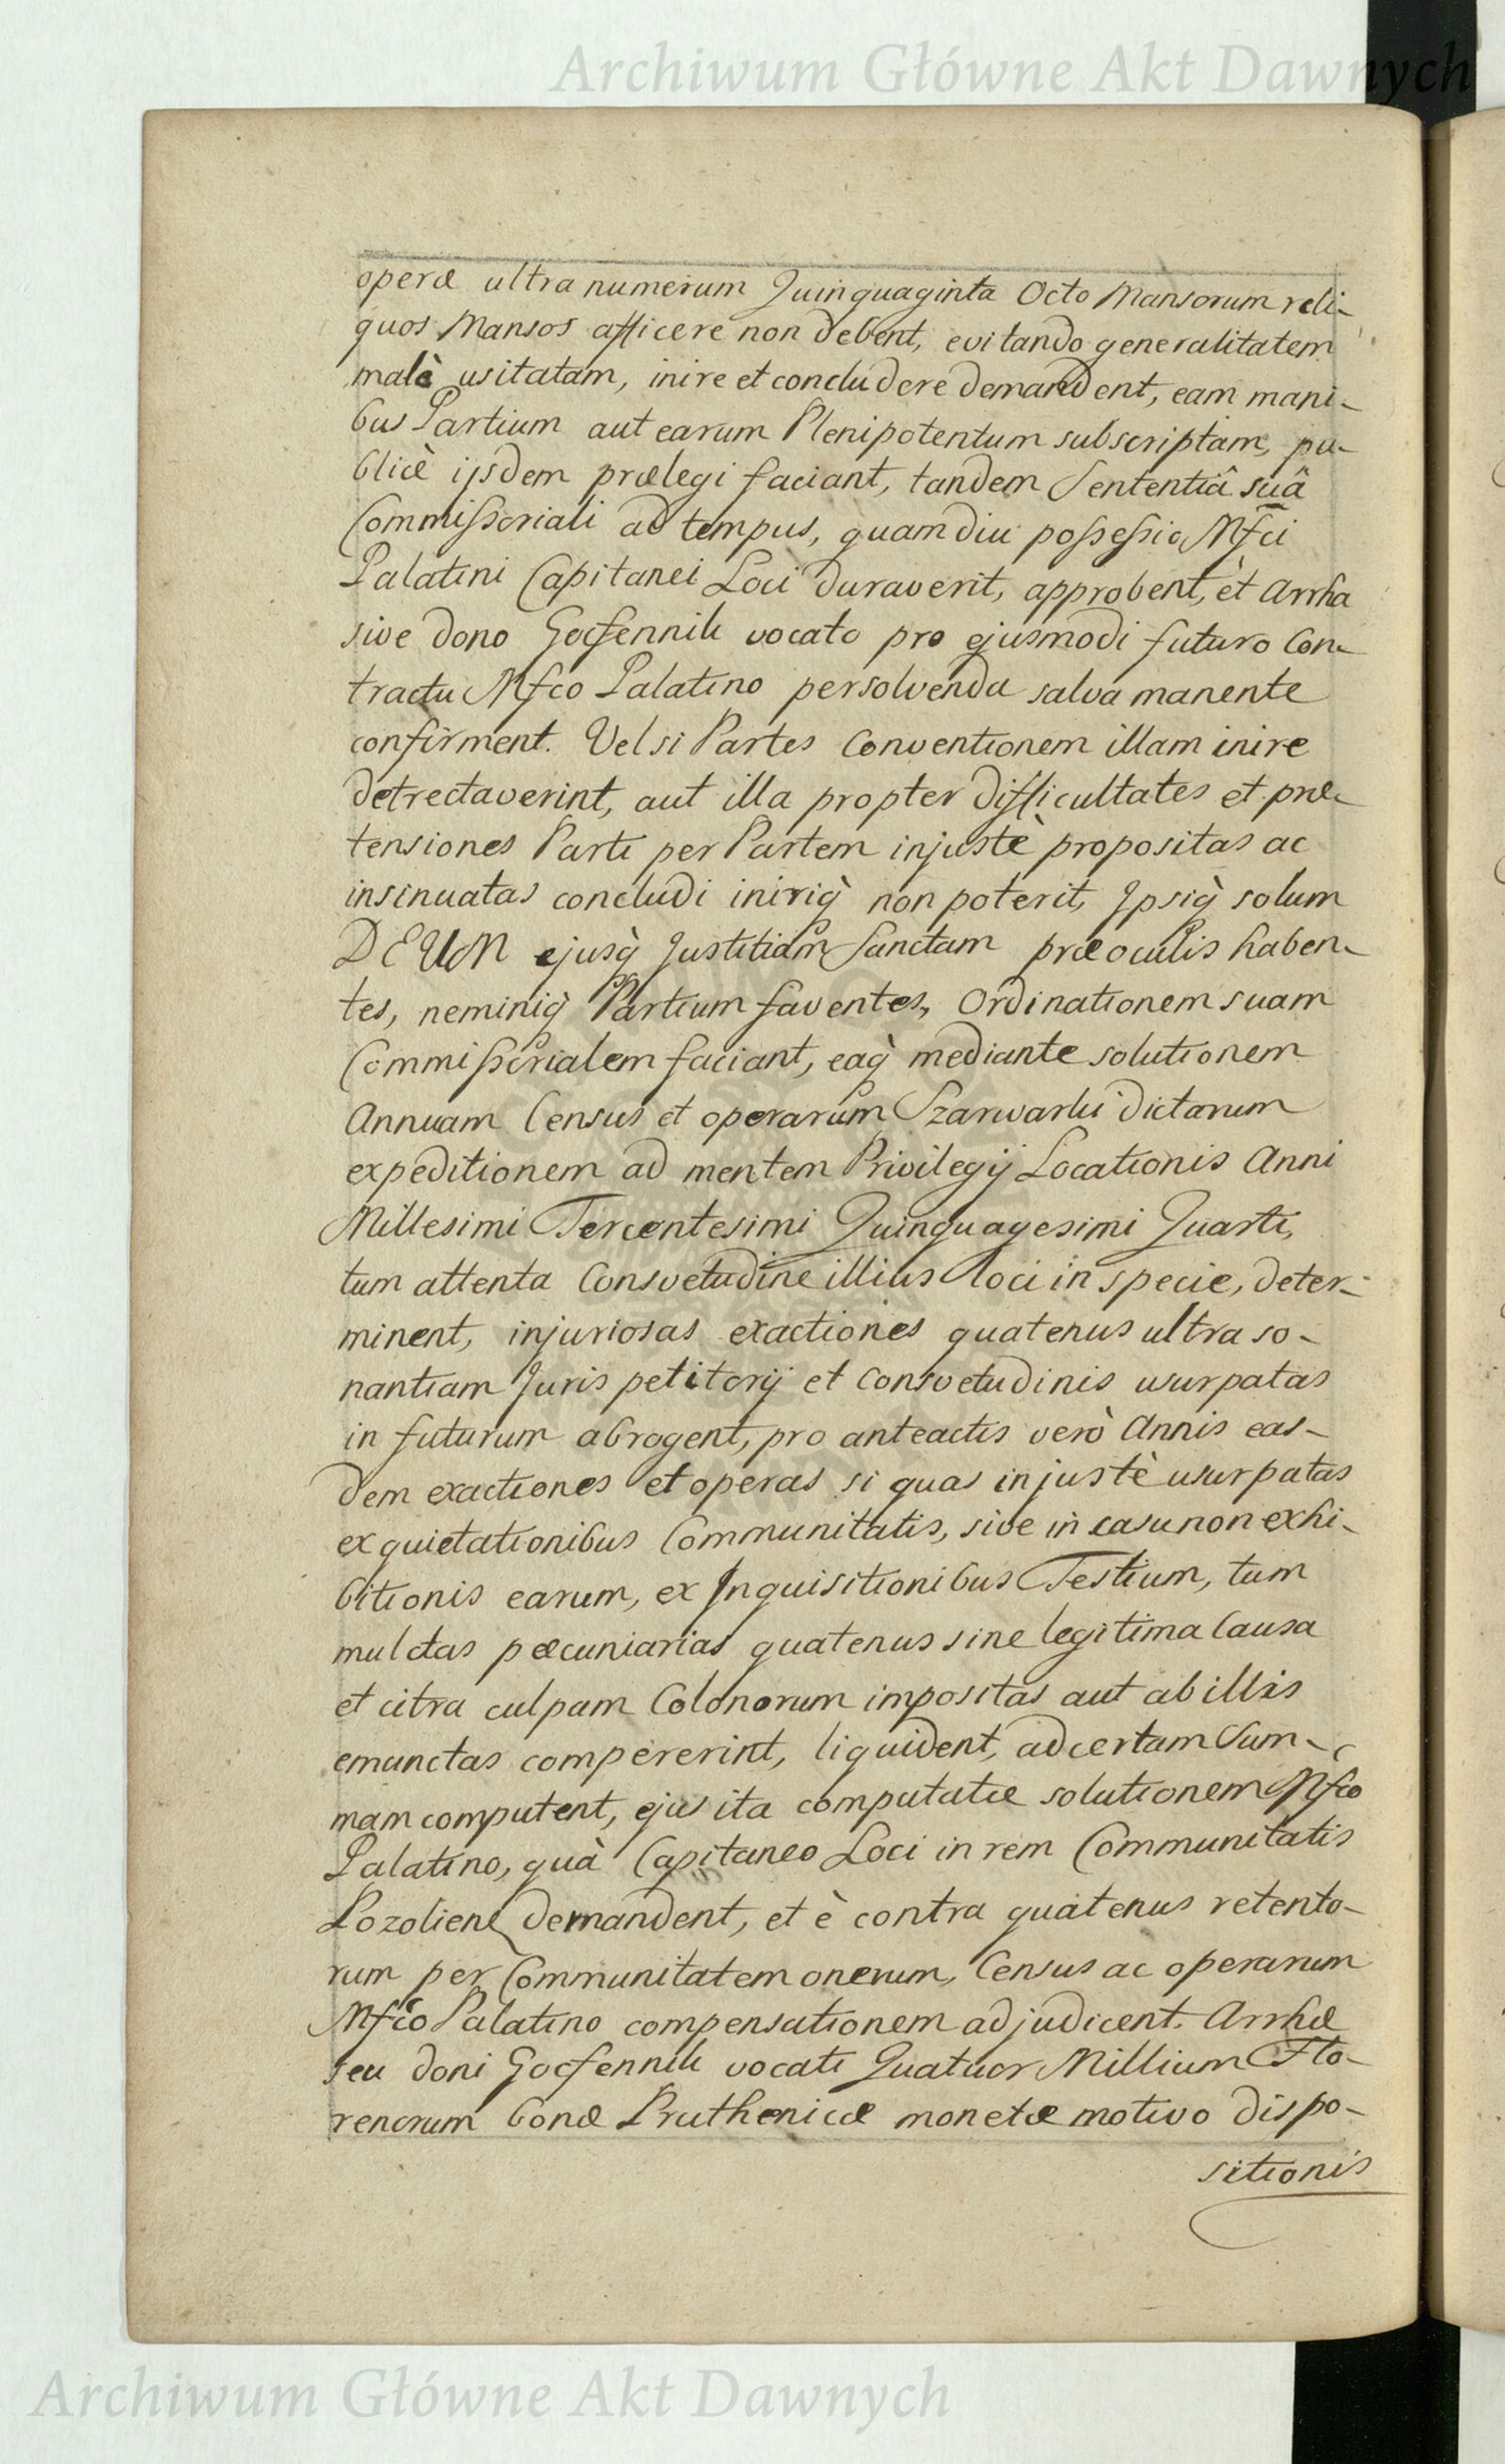 Archiwum Główne Akt Dawnych
operæ ultra numerum Quinquaginta Octo Mansorum reli-
quos Mansos afficere non debent, evitando generalitatem
malè usitatam, inire et concludere demandent, eam mani-
bus Partium aut earum Plenipotentum subscriptam, pu-
blicè ijsdem prælegi faciant, tandem Sententiâ suâ
Commissoriali ad tempus, quamdiu possessio Mfci
Palatini Capitanei Loci duraverit, approbent, et Arrha
sive dono Gocfennik vocato pro ejusmodi futuro Con-
tractu Mfco Palatino persolvenda salva manente
confirment. Vel si Partes Conventionem illam inire
detrectaverint, aut illa propter difficultates et præ-
tensiones Parti per Partem injustè propositas ac
insinuatas concludi iniriq̀ non poterit, Ipsiq̀ solum
DEUM ejusq̀ Justitiam Sanctam præ oculis haben-
tes, neminiq̀ Partium faventes, Ordinationem suam
Commissorialem faciant, eaq̀ mediante solutionem
Annuam Census et operarum Szarwarki dictarum
expeditionem ad mentem Privilegij Locationis Anni
Millesimi Tercentesimi Quinquagesimi Quarti,
tum attenta Consvetudine illius loci in specie, deter-
minent, injuriosas exactiones quatenus ultra so-
nantiam Juris petitorij et Consvetudinis usurpatas
in futurum abrogent, pro anteactis verò Annis eas-
dem exactiones et operas si quas injustè usurpatas
ex quietationibus Communitatis, sive in casu non exhi-
bitionis earum, ex Inquisitionibus Testium, tum
mulctas pæcuniarias quatenus sine legitima Causa
et citra culpam Colonorum impositas aut ab illis
emunctas compererint, liquident, ad certam Sum-
mam computent, ejus ita computatæ solutionem Mfco
Palatino, quà Capitaneo Loci in rem Communitatis
Pozolien demandent, et è contra quatenus retento-
rum per Communitatem onerum, Census ac operarum
Mfco Palatino compensationem adjudicent. Arrhæ
seu doni Gocfennik vocati Quatuor Millium Flo-
renorum bonæ Pruthenicæ monetæ motivo dispo-
sitionis
Archiwum Główne Akt Dawnych